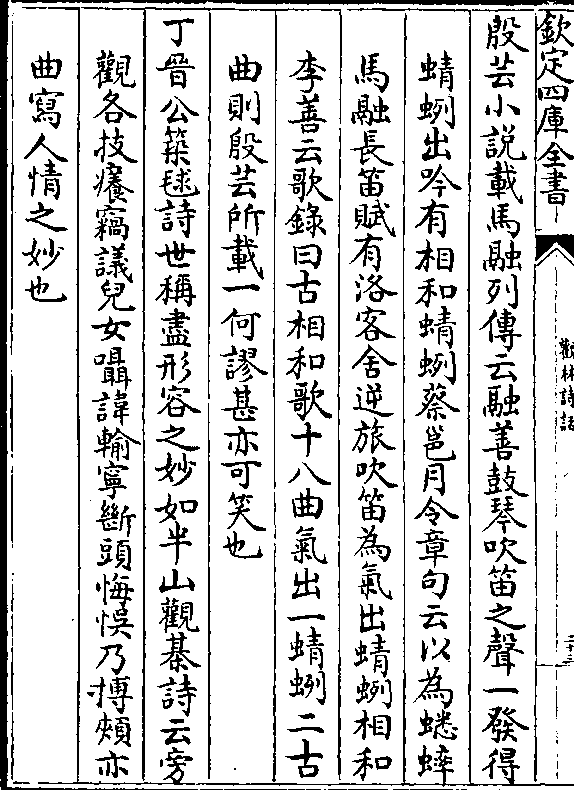 欽定四庫全書
觀林詩話
殷芸小説載馬融列傳云融善鼓琴吹笛之聲一發得
蜻蛚出吟有相和蜻蛚蔡邕月令章句云以為蟋蟀
馬融長笛賦有洛客舍逆旅吹笛為氣出蜻蛚相和
李善云歌錄曰古相和歌十八曲氣出一蜻蛚二古
曲則殷芸所載一何謬甚亦可笑也
丁晉公築毬詩世稱盡形容之妙如半山觀棊詩云旁
觀各技癢竊議兒女囁諱輸寧斷頭悔悞乃搏頰亦
曲寫人情之妙也